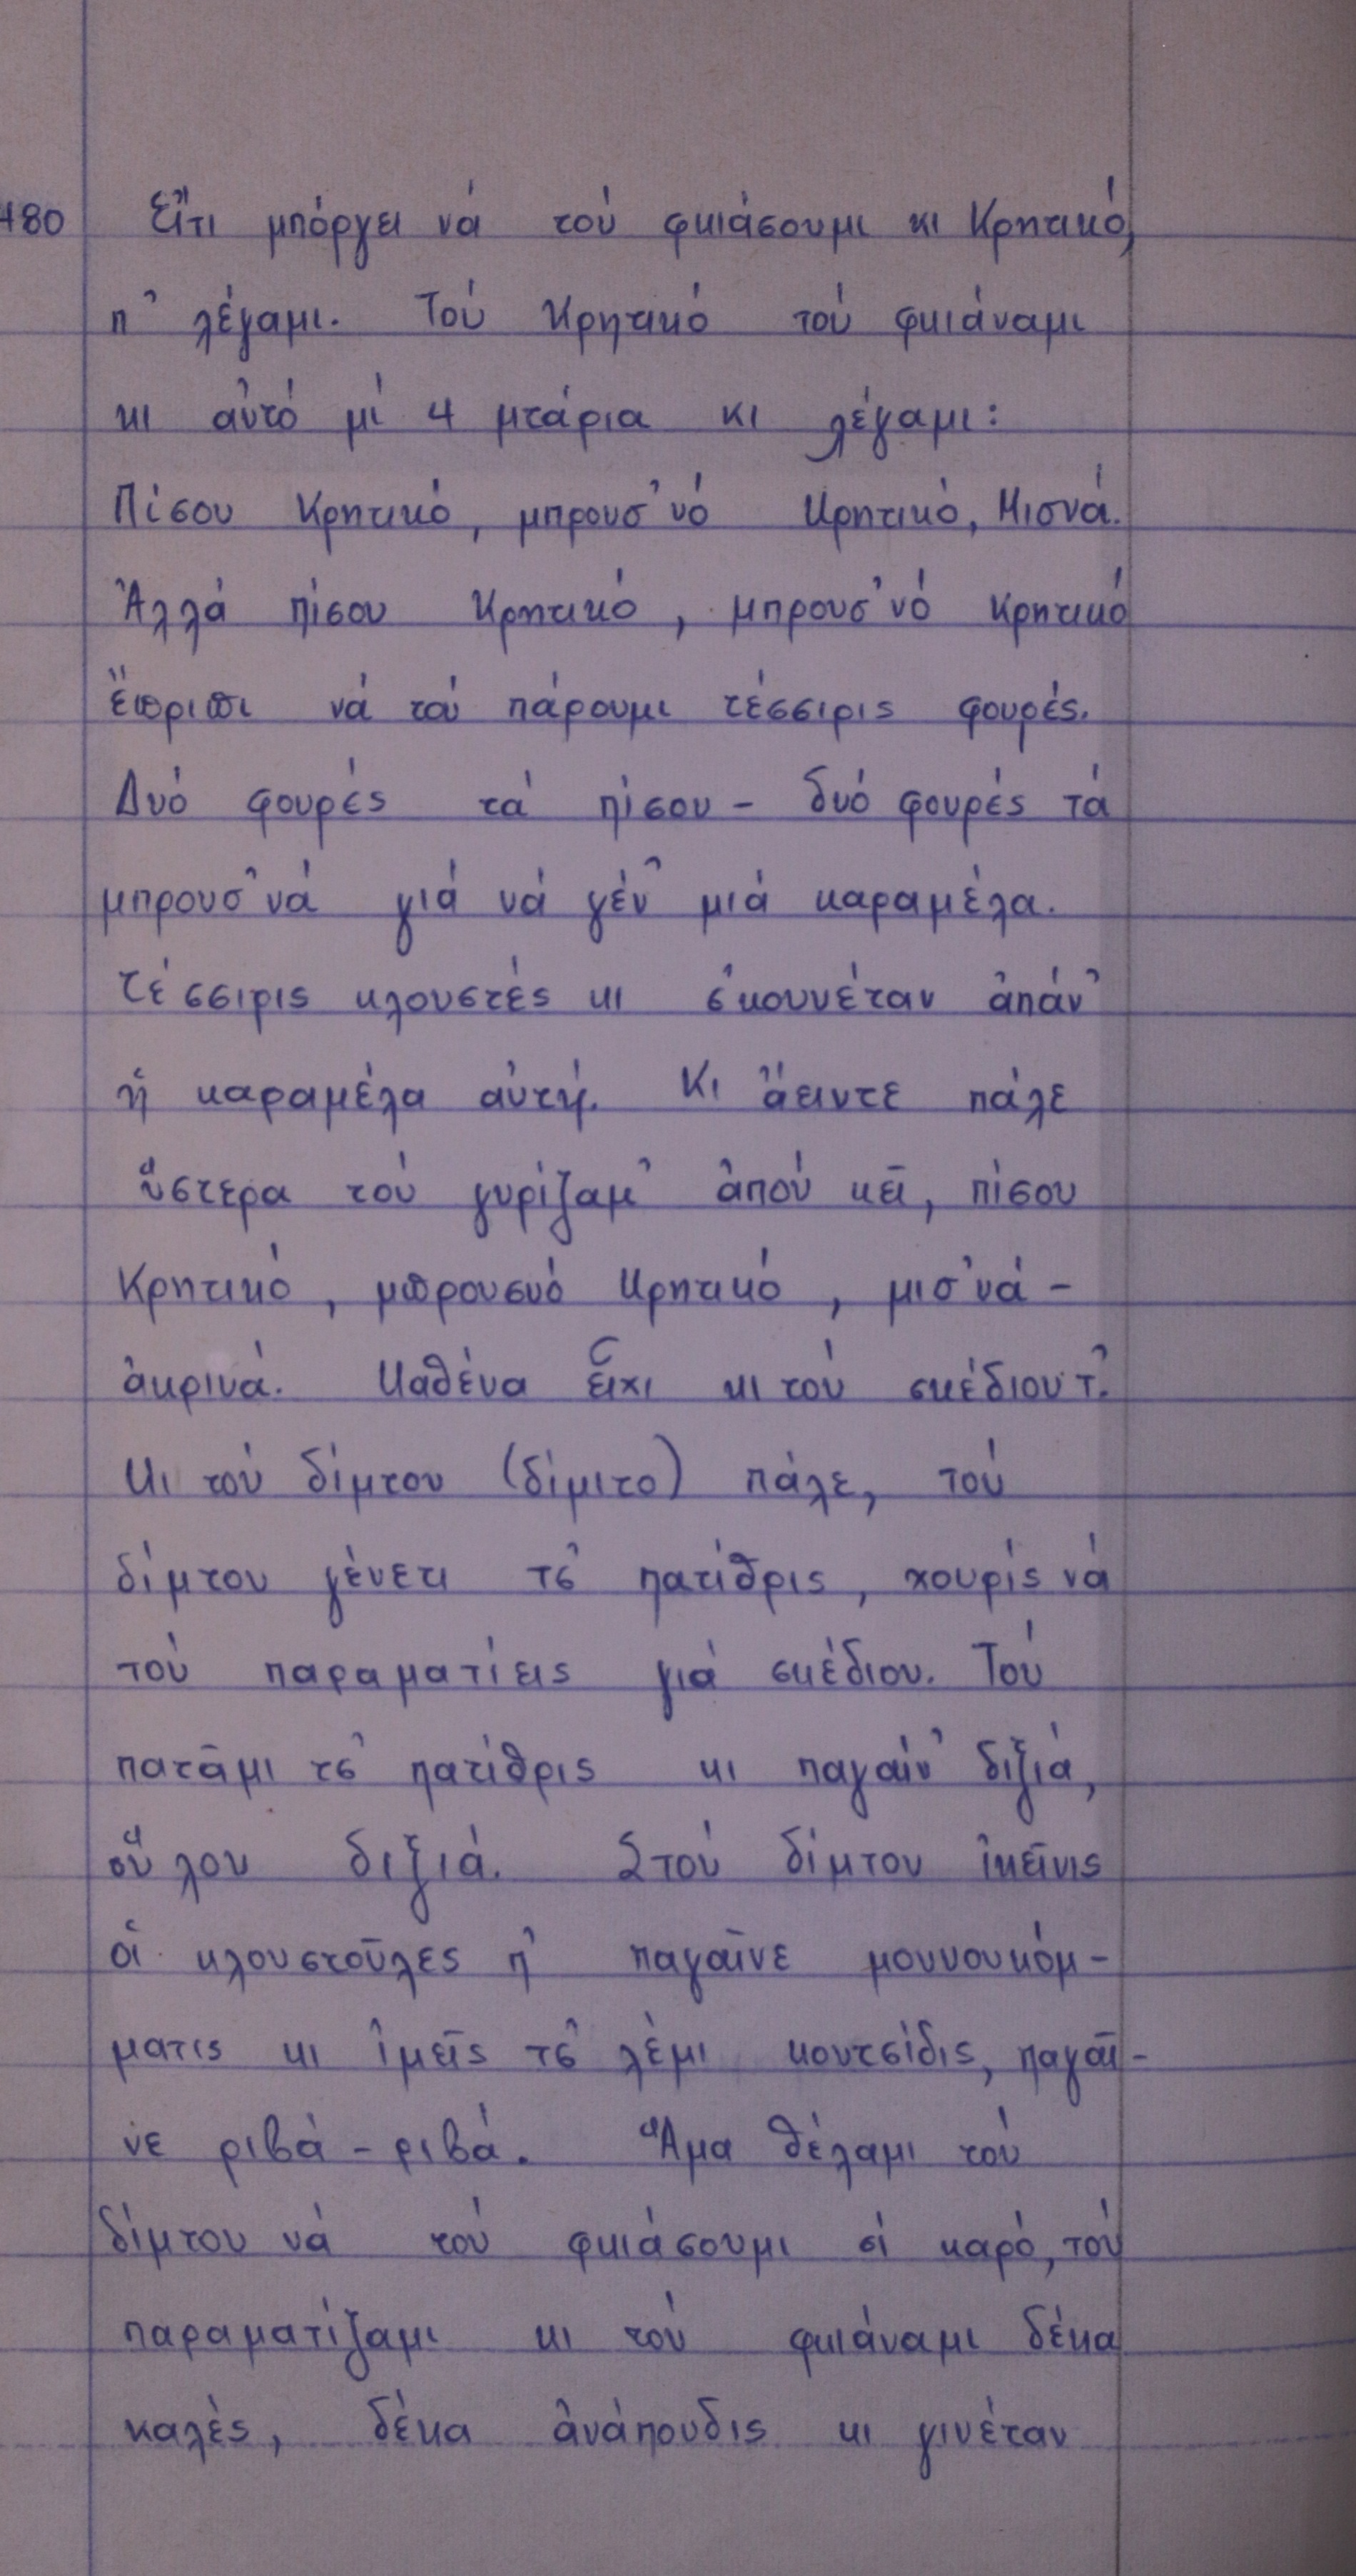 480 Εἴτι μπόργει νά τού φκιάσουμι κι Κρητικό,
π' λέγαμι. Τού Κρητικό τού φκιάναμι
κι αὐτό μί 4 μτάρια κι λέγαμι:
Πίσου Κρητικό, μπρουσ'νό Κρητικό, Μισνά.
Ἀλλά πίσου Κρητικό, μπρουσ'νό Κρητικό
ἔπριπι νά τού πάρουμι τέσσιρις φουρές.
Δυό φουρές τά πίσου – δυό φουρές τά
μπρουσ'νά γιά νά γέν' μιά καραμέλα.
Τέσσιρις κλουστές κι σ'κουνέταν ἀπάν'
ἡ καραμέλα αὐτή. Κι ἄειντε πάλε
ὕστερα τού γυρίζαμ' ἀπού κεῖ, πίσου
Κρητικό, μπρουσνό Κρητικό, μισ'νά –
ἀκρινά. Καθένα εἶχι κι τού σκέδιου τ'.
Κι τού δίμτου (δίμιτο) πάλε, τού
δίμτου γένετι τσ' πατίθρις, χουρίς νά
τού παραματίεις γιά σκέδιου. Τού
πατᾶμι τσ' πατίθρις κι παγαίν' διξιά,
οὕλου διξιά. Στού δίμτου ἰκεῖνις
οἱ κλουστοῦλες π' παγαῖνε μουνουκόμ-
ματις κι ἰμεῖς τσ' λέμι κουτσίδις, παγαῖ-
νε ριβά – ριβά. Ἅμα θέλαμι τού
δίμτου νά τού φκιάσουμι σί καρό, τού
παραματίζαμι κι τού φκιάναμι δέκα
καλές, δέκα ἀνάπουδις κι γινέταν